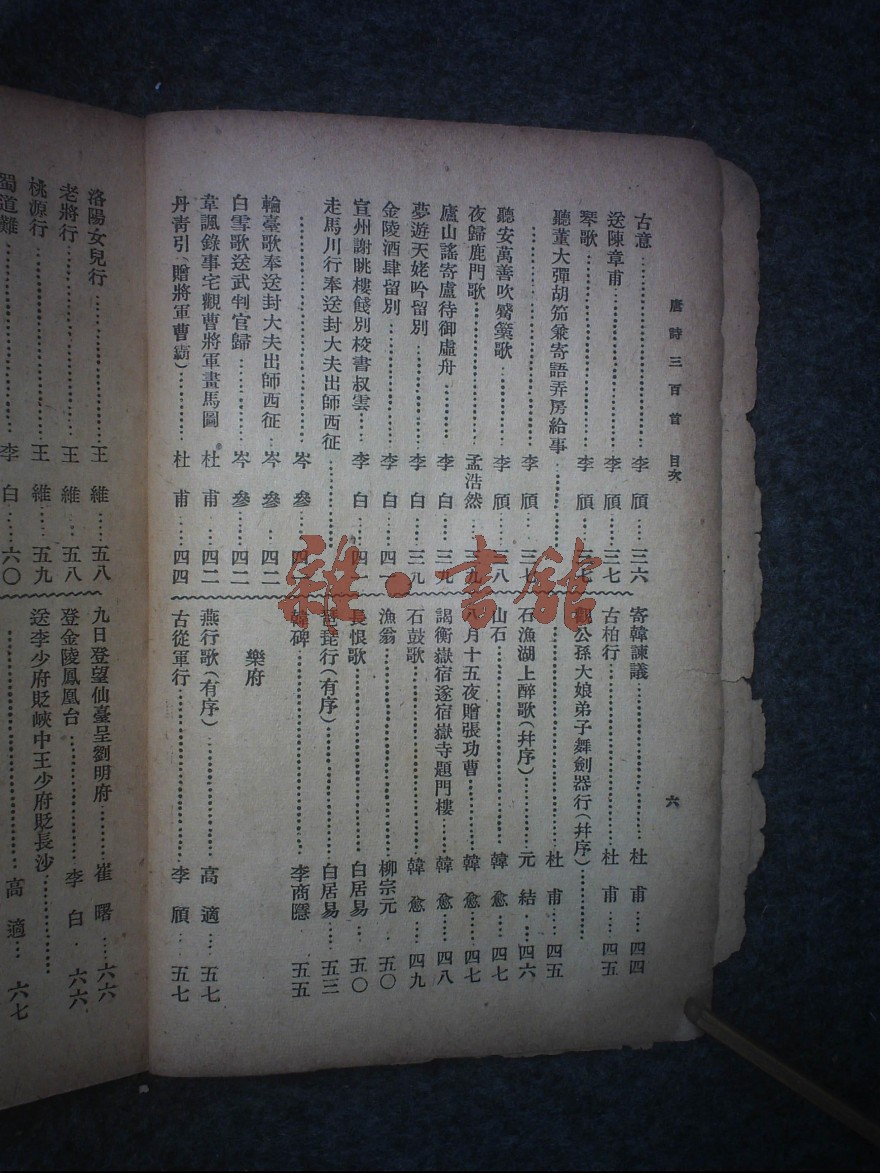 唐詩三百首 目次
六
古意……李頎……三六
送陳章甫……李頎……三七
琴歌……李頎……三七
聽董大彈胡笳兼寄語弄房給事
……李頎……三七
聽安萬善吹觱篥歌……李頎……三八
夜歸鹿門歌……孟浩然……三九
廬山謠寄盧侍御虛舟……李白……三九
夢遊天姥吟留別……李白……三九
金陵酒肆留別……李白……四一
宣州謝眺樓餞別校書叔雲……李白……四一
走馬川行奉送封大夫出師西征
……岑參……四一
輪臺歌奉送封大夫出師西征……岑參……四二
白雪歌送武判官歸……岑參……四二
韋諷錄事宅觀曹將軍畫馬圖 杜甫……四二
丹靑引(贈將軍曹霸)……杜甫……四四
寄韓諫議……杜甫……四四
古柏行……杜甫……四五
觀公孫大娘弟子舞劍器行(幷序)……
杜甫……四五
石漁湖上醉歌(幷序)……元結……四六
山石……韓愈……四七
八月十五夜贈張功曹……韓愈……四七
謁衡嶽宿遂宿嶽寺題門樓……韓愈……四八
石鼓歌……韓愈……四九
漁翁……柳宗元……五〇
長恨歌……白居易……五〇
琵琶行(有序)……白居易……五三
韓碑……李商隱……五五
樂府
燕行歌(有序)……高適……五七
古從軍行……李頎……五七
洛陽女兒行……王維……五八
老將行……王維……五八
桃源行……王維……五九
蜀道難……李白……六〇
九日登望仙臺呈劉明府……崔曙……六六
登金陵鳳凰台……李白……六六
送李少府貶峽中王少府貶長沙……
……高適……六七
雜·書館